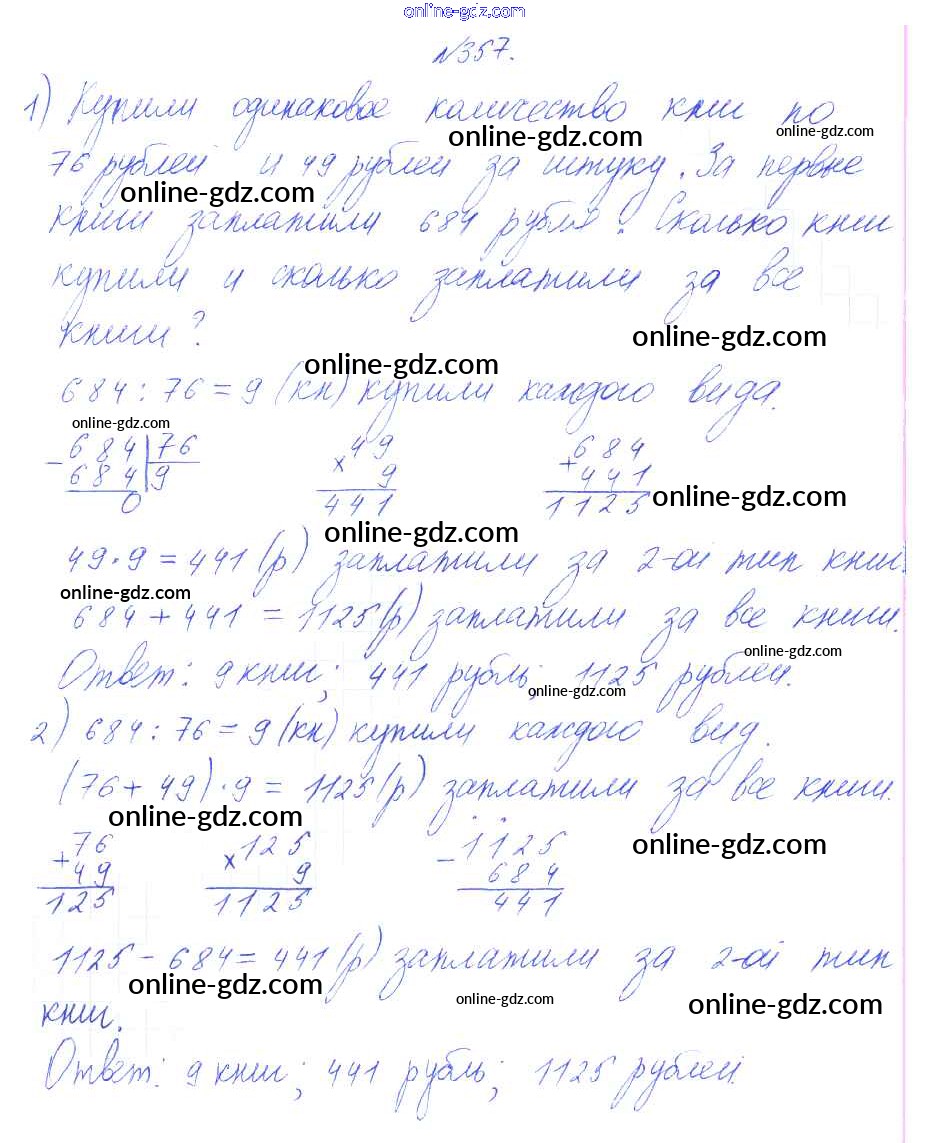 online-gdz.com
№357.
1) Купили одинаковое количество книг по
online-gdz.com online-gdz.com
76 рублей и 49 рублей за штуку. За первые
online-gdz.com
книги заплатили 684 рубля? Сколько книг
купили и сколько заплатили за все
книги?
online-gdz.com
online-gdz.com
684 : 76 = 9 (кн) купили каждого вида.
online-gdz.com
- 684 | 76 49 684
684 | 9 × 9 + 441
0 441 1125
online-gdz.com
online-gdz.com
49 · 9 = 441 (р) заплатили за 2-ой тип книг.
online-gdz.com
684 + 441 = 1125 (р) заплатили за все книги.
online-gdz.com
Ответ: 9 книг; 441 рубль; 1125 рублей.
online-gdz.com
2) 684 : 76 = 9 (кн) купили каждого вид.
(76 + 49) · 9 = 1125 (р) заплатили за все книги.
online-gdz.com
online-gdz.com
76 125 1125
+ 49 × 9 - 684
125 1125 441
1125 - 684 = 441 (р) заплатили за 2-ой тип
online-gdz.com online-gdz.com online-gdz.com
книг.
Ответ: 9 книг; 441 рубль; 1125 рублей.